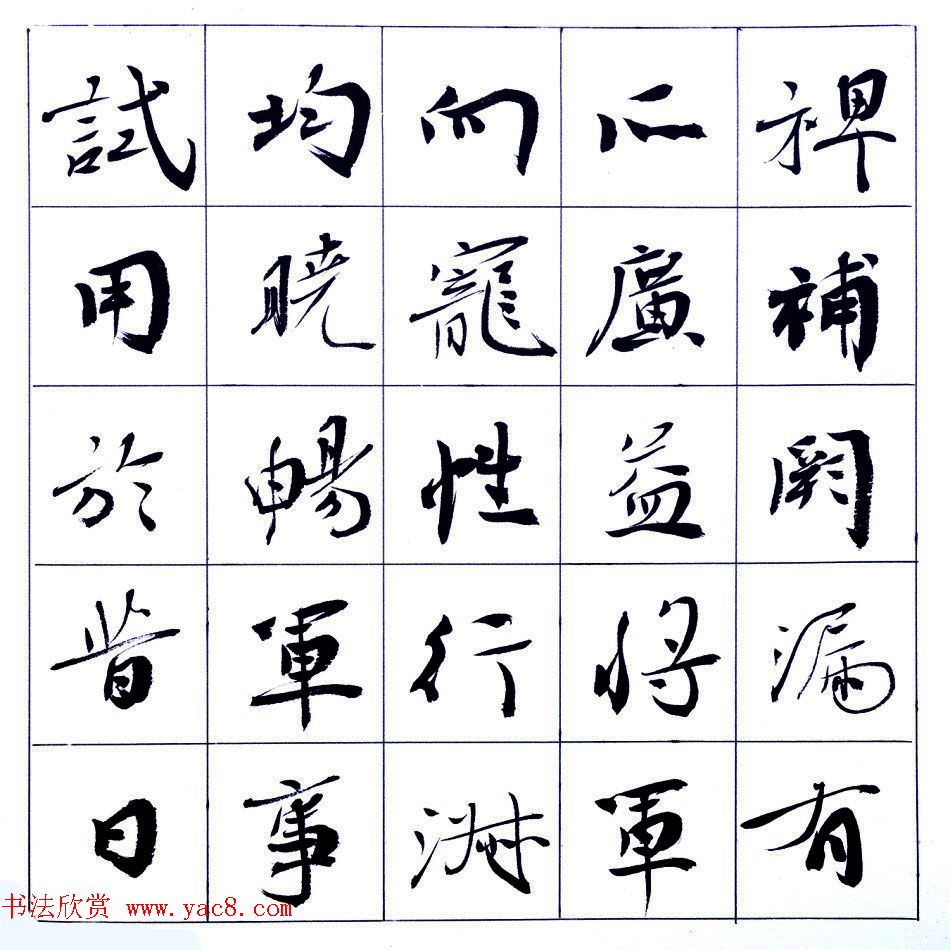 裨補闕漏有
所廣益將軍
向寵性行淑
均曉暢軍事
試用於昔日
书法欣赏 www.yac8.com